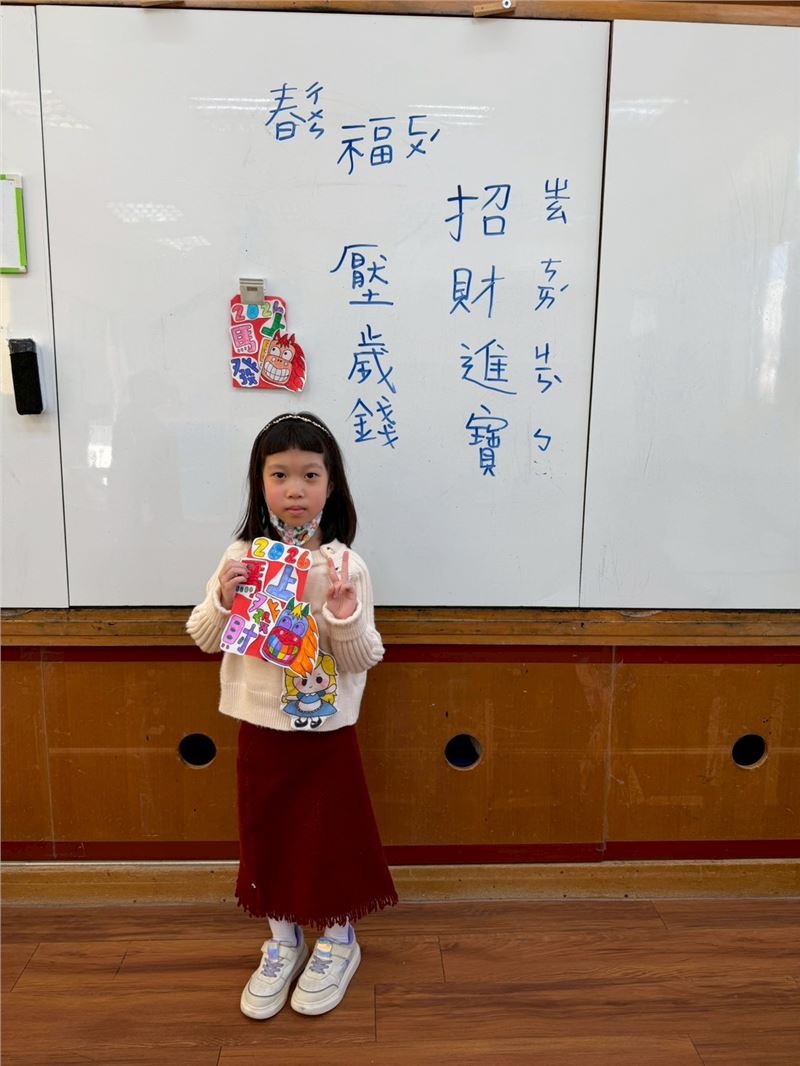 春ㄔㄨㄣ
福ㄈㄨˊ
招ㄓㄠ
財ㄘㄞˊ
進ㄐㄧㄣˋ
寶ㄅ
壓歲錢
2026
馬上
發
2026
馬上
發財